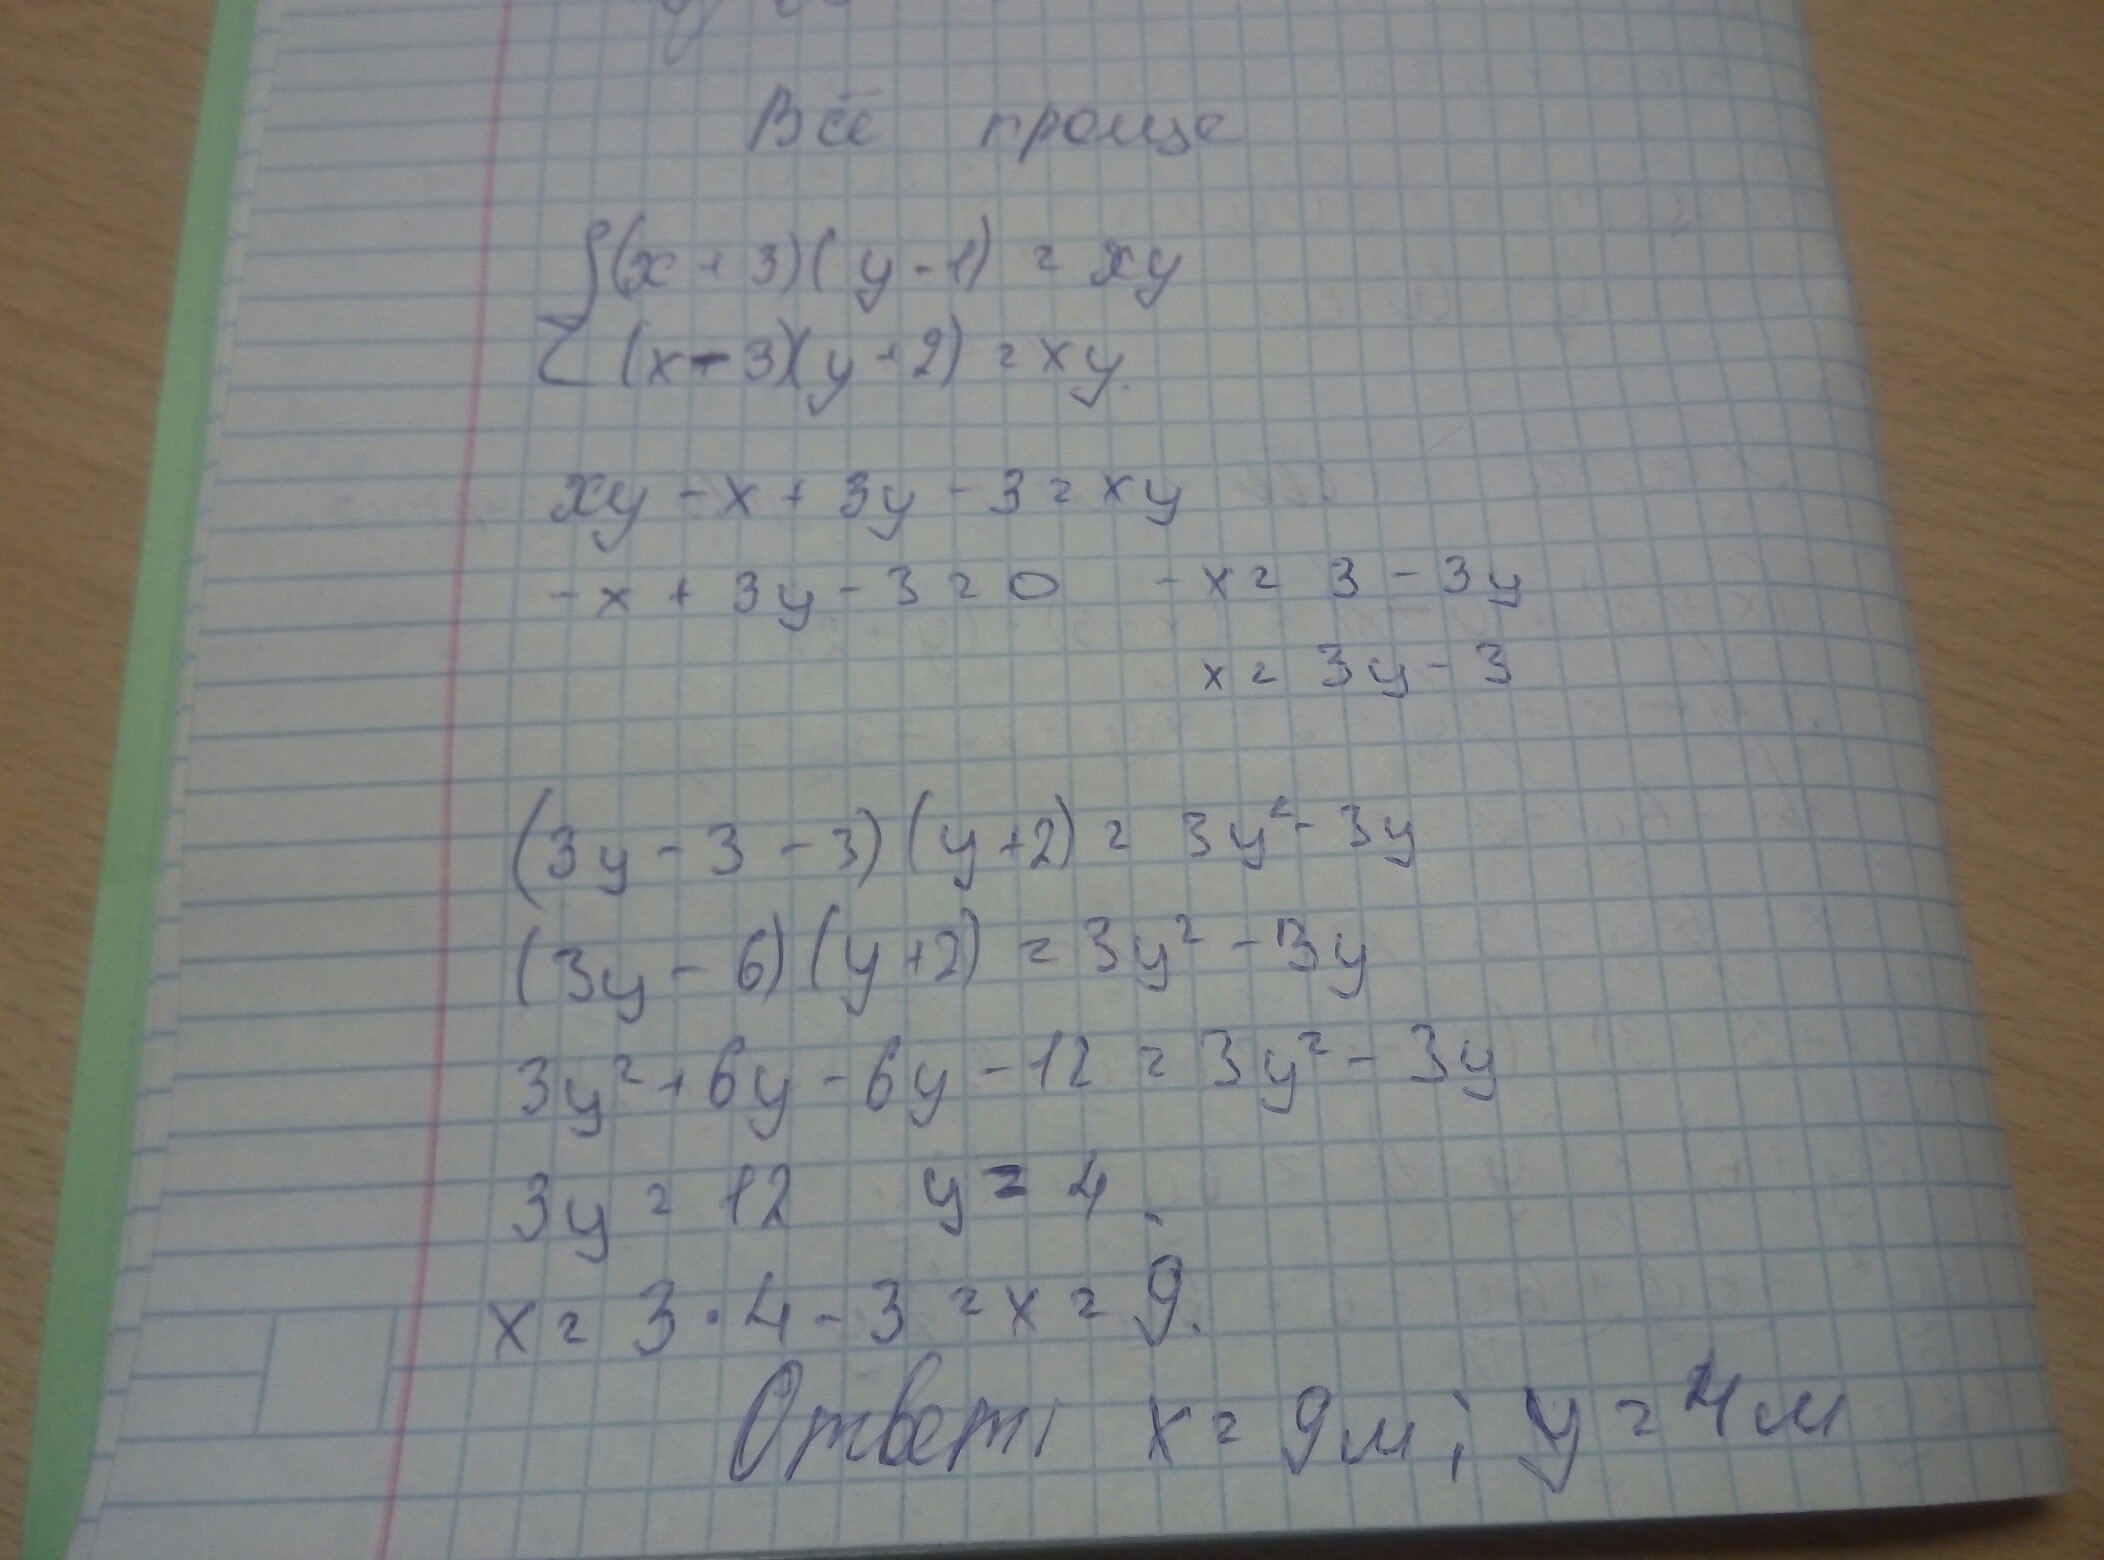 Всё проще
(x + 3)(y - 1) = xy
(x - 3)(y + 2) = xy.
xy - x + 3y - 3 = xy
- x + 3y - 3 = 0 - x = 3 - 3y
x = 3y - 3
(3y - 3 - 3)(y + 2) = 3y² - 3y
(3y - 6)(y + 2) = 3y² - 3y
3y² + 6y - 6y - 12 = 3y² - 3y
3y = 12 y = 4
x = 3 · 4 - 3 = x = 9.
Ответ: x = 9м; y = 4м